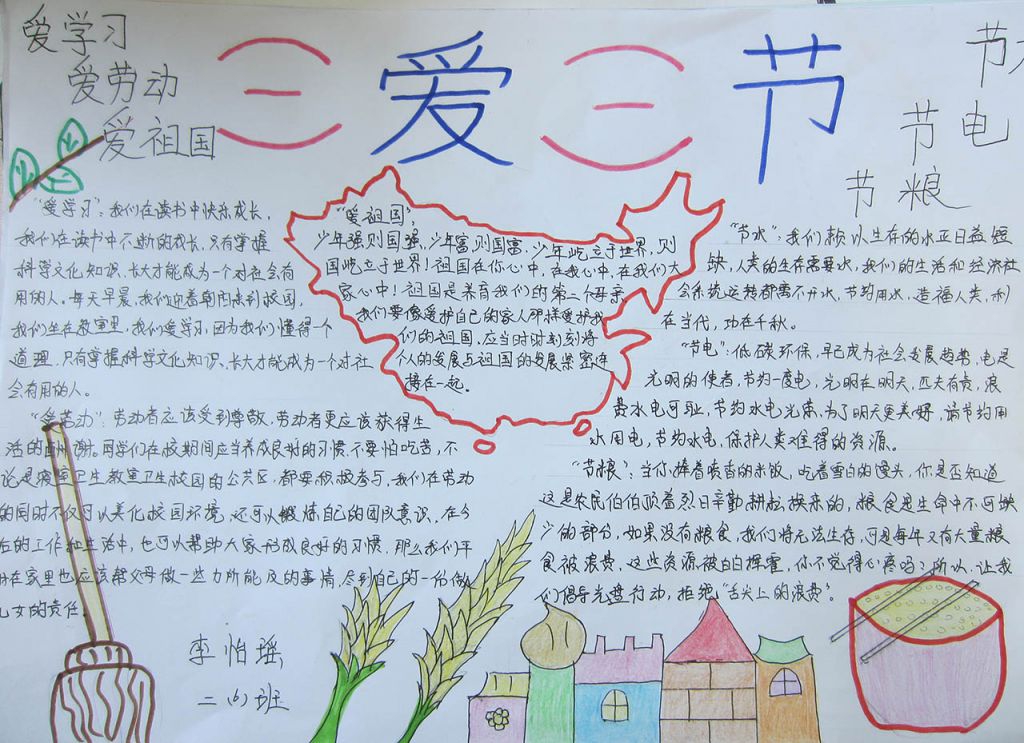 爱学习
爱劳动
爱祖国
(三)爱(三)节
节水
节电
节粮
"爱学习":我们在读书中快乐成长,
我们在读书中不断的成长,只有掌握
科学文化知识,长大才能成为一个对社会有
用的人。每天早晨,我们迎着朝阳来到校园,
我们坐在教室里,我们爱学习,因为我们懂得一个
道理,只有掌握科学文化知识,长大才能成为一个对社
会有用的人。
"爱劳动":劳动者应该受到尊敬,劳动者更应该获得生
活的酬谢。同学们在校期间应当养成良好的习惯,不要怕吃苦,不
论是寝室卫生教室卫生校园的公共区,都要积极参与,我们在劳动
的同时不仅可以美化校园环境,还可以锻炼自己的团队意识,在今
后的工作和生活中,也可以帮助大家形成良好的习惯,那么我们平
时在家里也应该帮父母做一些力所能及的事情,尽到自己的一份做
儿女的责任。
"爱祖国"
少年强则国强,少年富则国富,少年屹立于世界,则
国屹立于世界!祖国在你心中,在我心中,在我们大
家心中!祖国是养育我们的第二个母亲,
我们要像爱护自己的家人那样爱护我
们的祖国,应当时时刻刻将
个人的发展与祖国的发展紧密连
接在一起。
"节水":我们赖以生存的水正日益短
缺,人类的生存需要水,我们的生活和经济社
会系统运转都离不开水,节约用水,造福人类,利
在当代,功在千秋。
"节电":低碳环保,早已成为社会发展趋势,电是
光明的使者,节约一度电,光明在明天,匹夫有责,浪
费水电可耻,节约水电光荣,为了明天更美好,请节约用
水用电,节约水电,保护人类难得的资源。
"节粮":当你捧着喷香的米饭,吃着雪白的馒头,你是否知道
这是农民伯伯顶着烈日辛勤耕耘换来的,粮食是生命中不可缺
少的部分,如果没有粮食,我们将无法生存,可是每年又有大量粮
食被浪费,这些资源被白白挥霍,你不觉得心疼吗?所以,让我
们倡导光盘行动,拒绝"舌尖上的浪费"。
李怡瑶
二(6)班